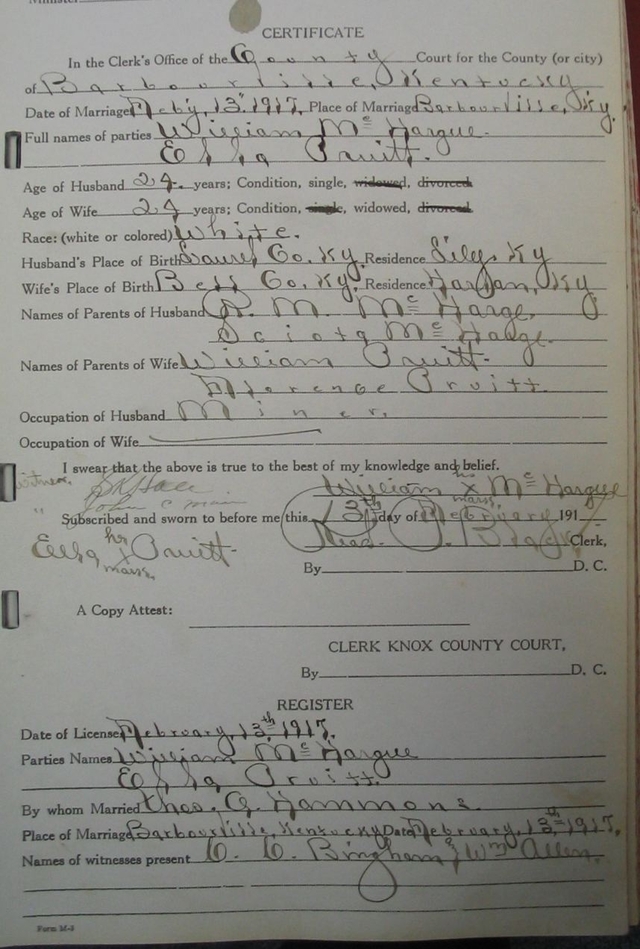 CERTIFICATE
In the Clerk's Office of the County Court for the County (or city)
of Barbourville, Kentucky
Date of Marriage Feby, 13th 1917, Place of Marriage Barbourville, Ky.
Full names of parties William Mc Hargue.
Pruitt.
Age of Husband 24 years; Condition, single, widowed, divorced
Age of Wife 24 years; Condition, single, widowed, divorced
Race: (white or colored) White.
Husband's Place of Birth Laurel Co. Ky, Residence Siler Ky
Wife's Place of Birth Bell Co. Ky, Residence Harlan, Ky
Names of Parents of Husband R. M. Mc Harge,
Sciota Mc Harge.
Names of Parents of Wife William Pruitt.
Florence Pruitt.
Occupation of Husband Miner,
Occupation of Wife
I swear that the above is true to the best of my knowledge and belief.
witness. his
William X Mc Hargue
mark
Subscribed and sworn to before me this 13th day of February 191
his
Pruitt.
mark.
Clerk,
By D. C.
A Copy Attest:
CLERK KNOX COUNTY COURT,
By D. C.
REGISTER
Date of License February, 13th 1917,
Parties Names William Mc Hargue
Pruitt.
By whom Married Thos. G. Hammons.
Place of Marriage Barbourville, Kentucky Date February, 13th 1917,
Names of witnesses present Bingham, & Wm Allen.
Form M-3